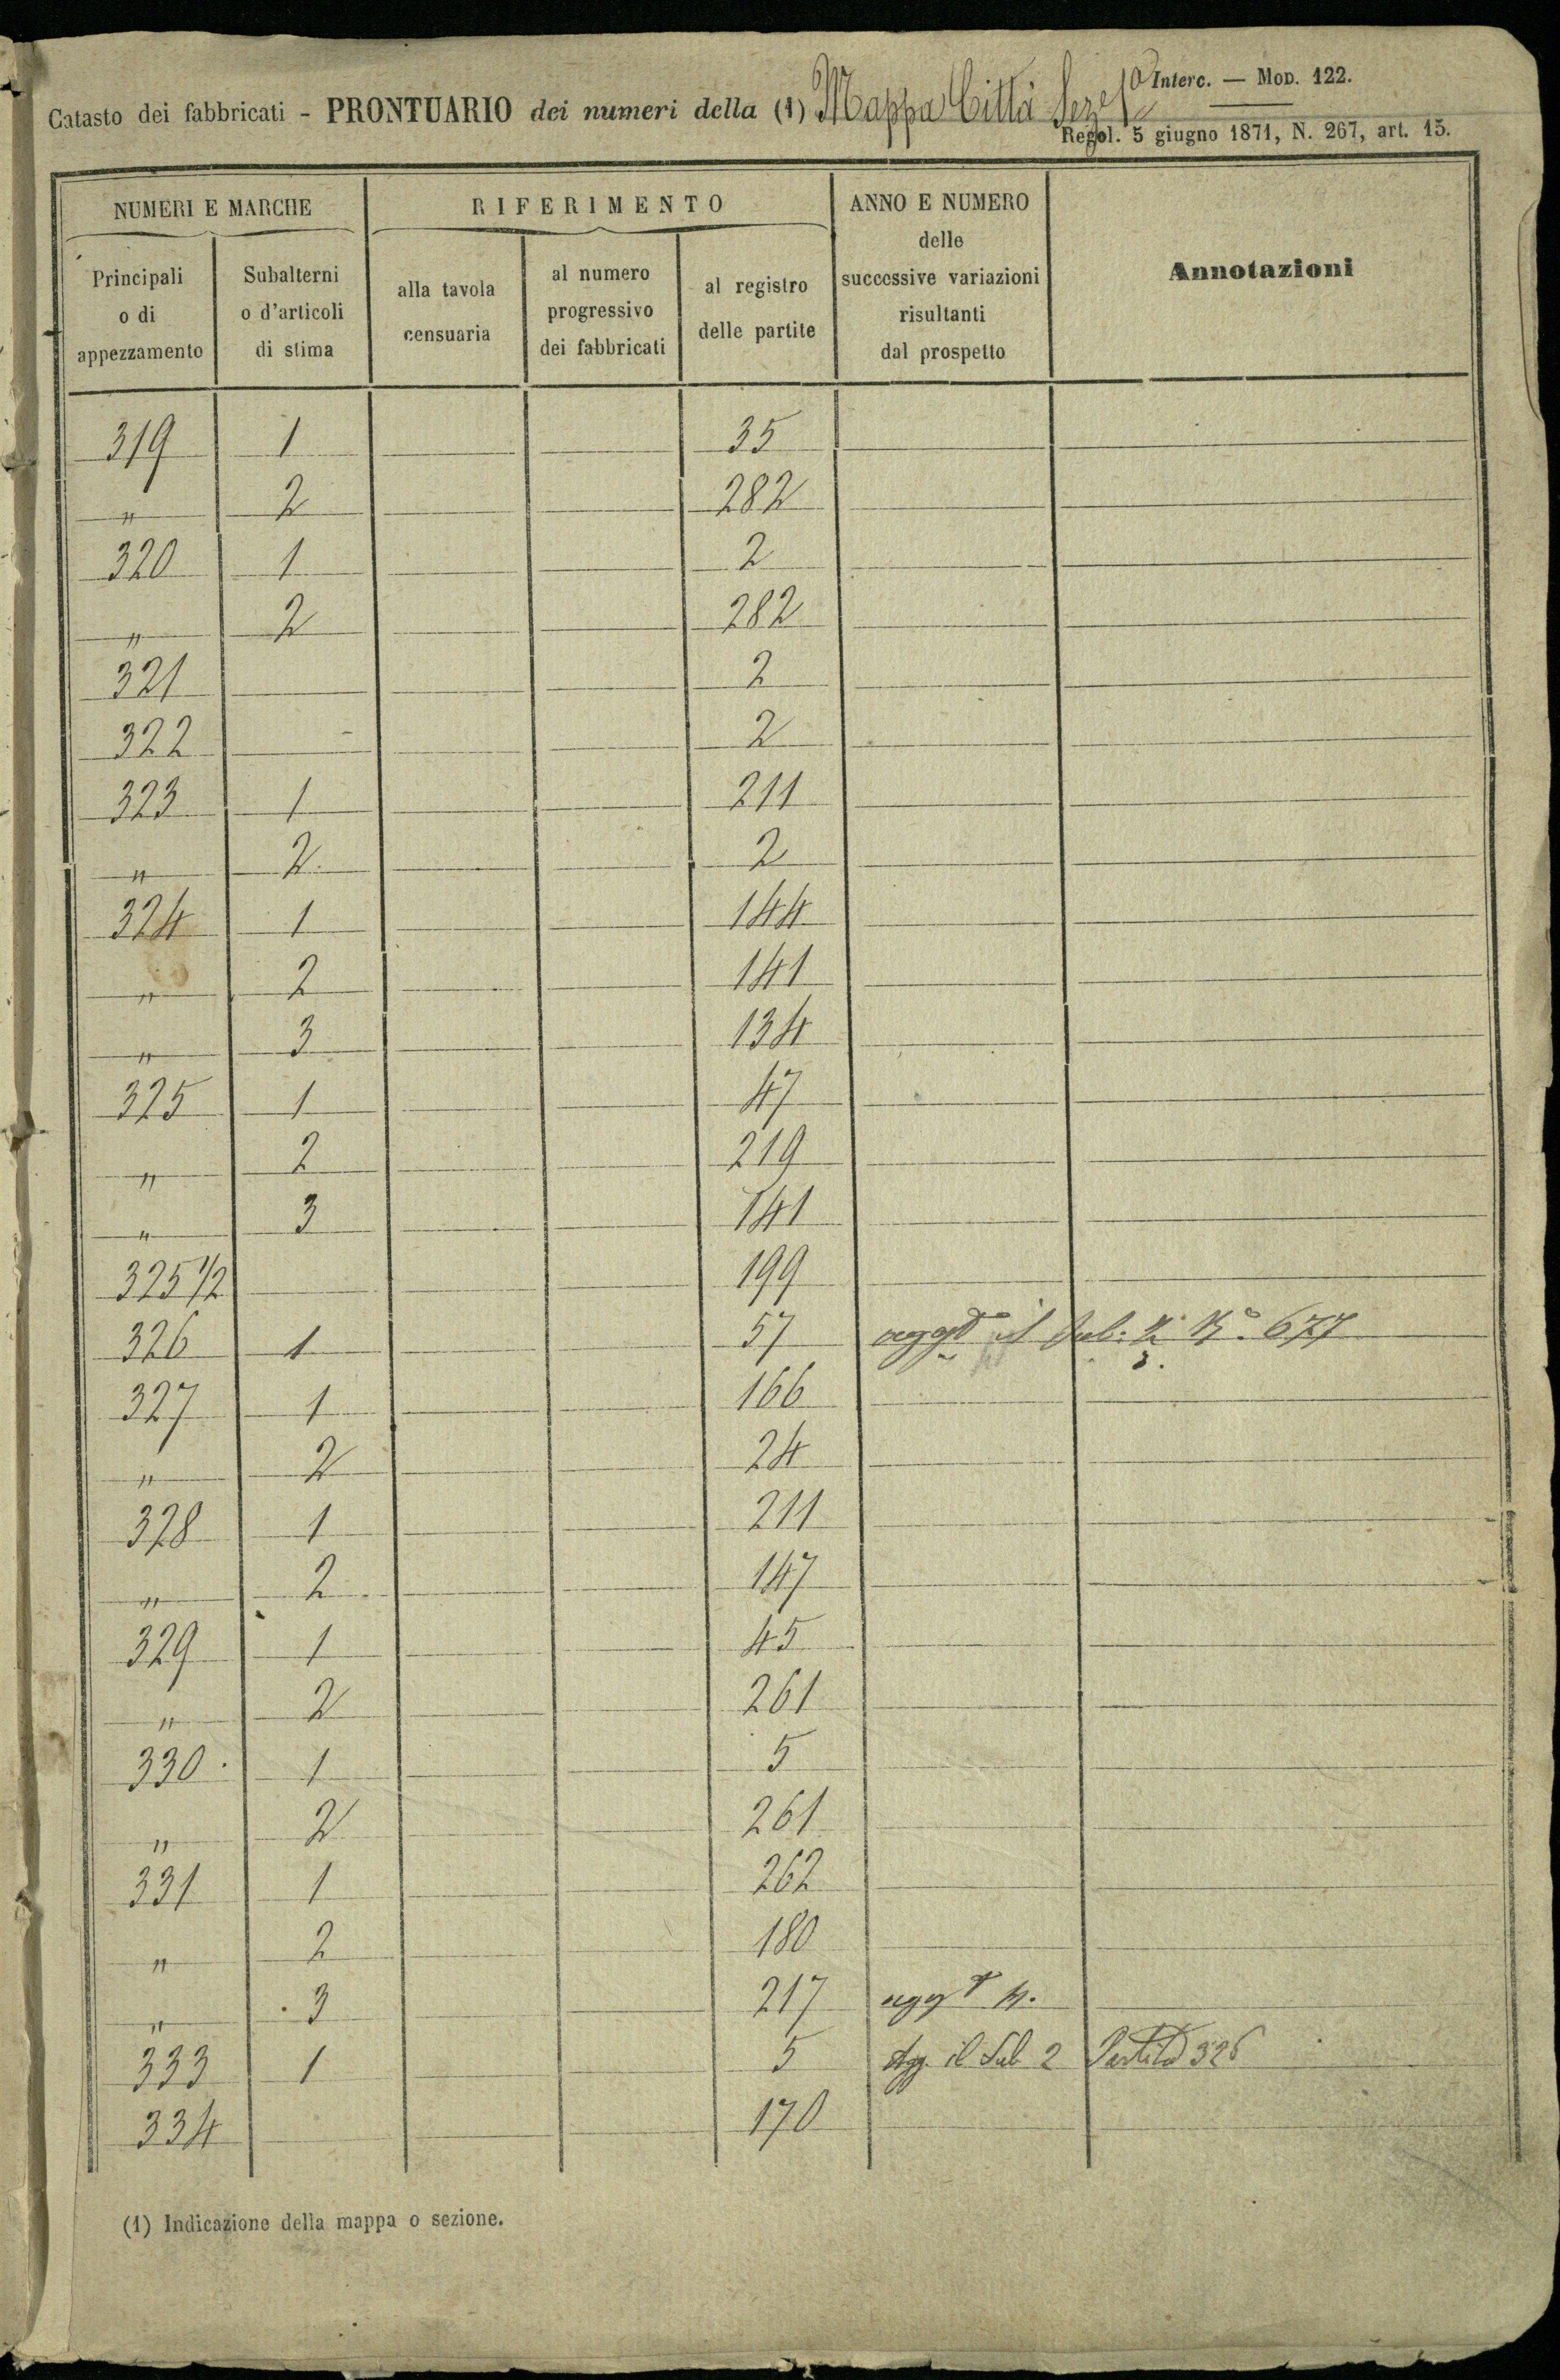 Interc. — Mod. 122.
Catasto dei fabbricati - PRONTUARIO dei numeri della (1) Mappa Città Seze 1a
Regol. 5 giugno 1871, N. 267, art. 15.
NUMERI E MARCHE
Principali o di appezzamento
Subalterni o d'articoli di stima
RIFERIMENTO
alla tavola censuaria
al numero progressivo dei fabbricati
al registro delle partite
ANNO E NUMERO delle successive variazioni risultanti dal prospetto
Annotazioni
319 1 35
" 2 282
320 1 2
" 2 282
321 2
322 2
323 1 211
" 2 2
324 1 144
" 2 141
" 3 134
325 1 47
" 2 219
" 3 141
325 1/2 199
326 1 57 il sub: 677
327 1 166
" 2 24
328 1 211
" 2 147
329 1 45
" 2 261
330 1 5
" 2 261
331 1 262
" 2 180
" 3 217
333 1 5 Agg. il Sub 2 Partita 326
334 170
(1) Indicazione della mappa o sezione.